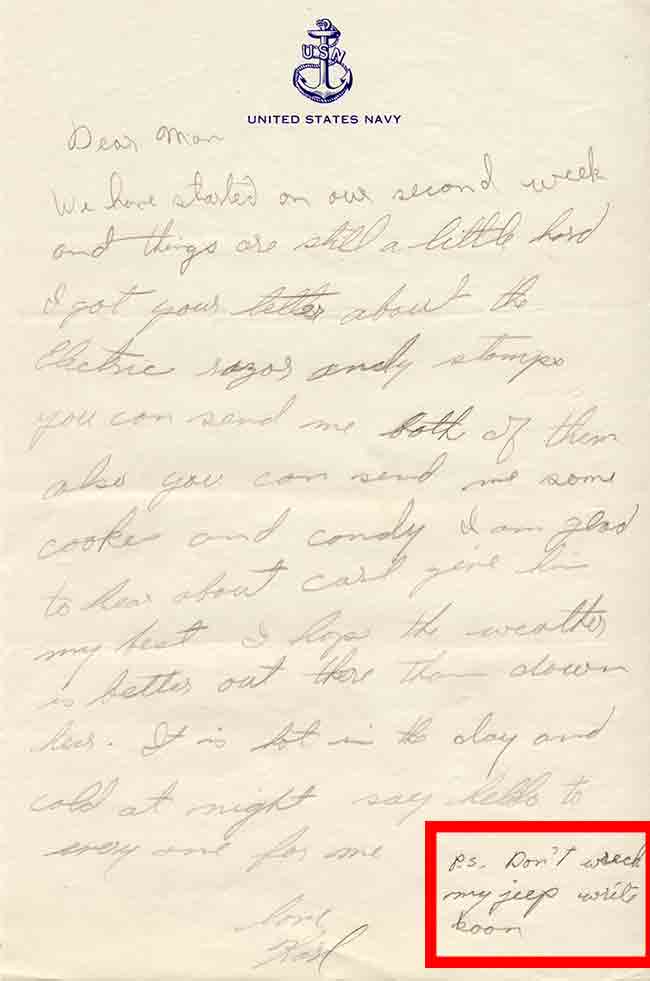 USN
UNITED STATES NAVY
Dear Mom
We have started on our second week
and things are still a little hard
I got your letter about the
Electric razor andy stamps
you can send me both of them
also you can send me some
cookes and candy I am glad
to hear about carl give him
my best I hope the weather
is better out there than down
hear. It is hot in the day and
cold at night say hello to
every one for me
love
Karl
P.s. Don't wreck
my jeep write
soon